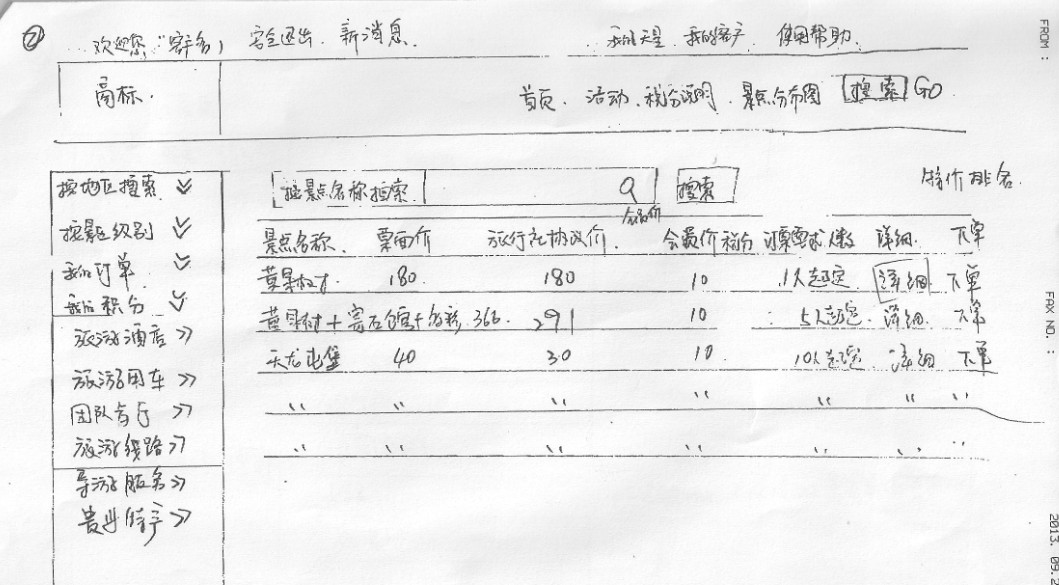 ②
欢迎您,"客户名", 安全退出 新消息.
我的客户 使用帮助
商标.
首页. 活动. 积分说明. 景点分布图 搜索 GO
按地区搜索
按景区级别
我的订单
我的积分
旅游酒店 >>
旅游用车 >>
团队音乐 >>
旅游线路 >>
导游服务 >>
特产 >>
按景点名称搜索 Q 搜索
特价排名
景点名称. 票面价 旅行社协议价. 会员价 积分 订票要求人数 详细. 下单
黄果树. 180. 180 10 1人起定 详细 下单
黄果树 + 366. 291 10 5人起定 详细. 下单
天龙屯堡 40 30 10. 10人起定 详细 下单
" " " " " " "
" " " " " " "
FROM :
FAX NO. :
2013. 09.2